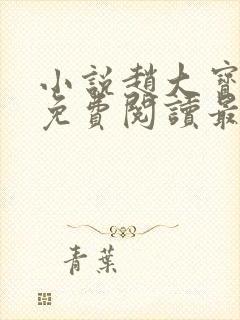 小說趙大寶
免費閱讀最
青葉